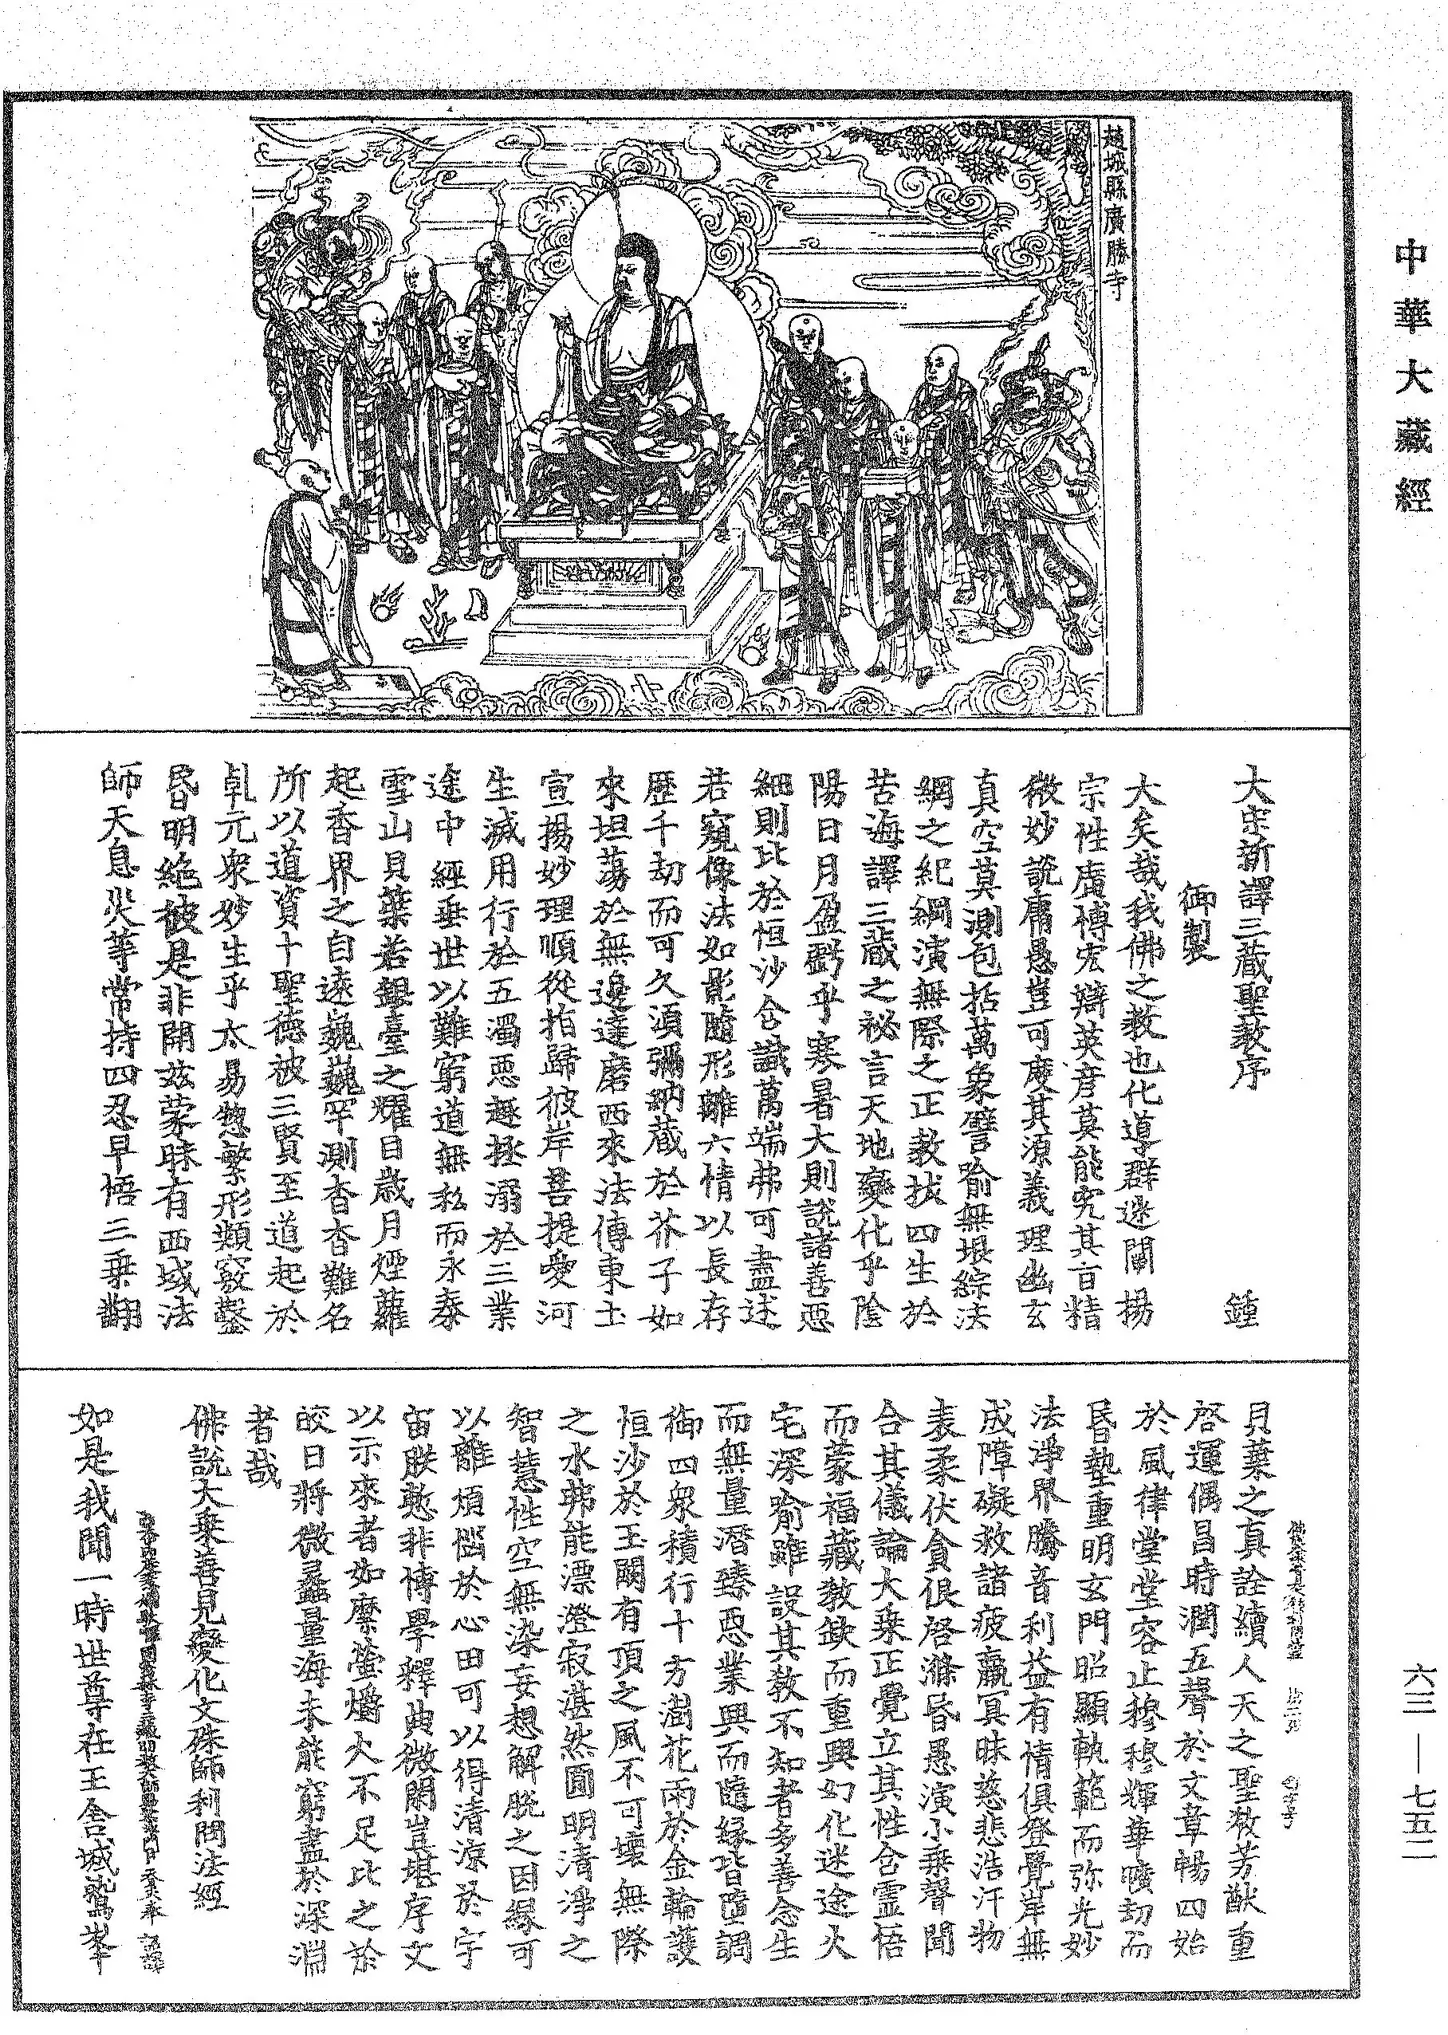 中華大藏經
趙城縣廣勝寺
大宋新譯三藏聖教序 鍾
御製
大矣哉我佛之教也化導群迷闡揚
宗性廣博宏辯英彥莫能究其旨精
微妙說庸愚豈可度其源義理幽玄
真空莫測包括萬象譬喻無垠綜法
網之紀綱演無際之正教拔四生於
苦海譯三藏之祕言天地變化乎陰
陽日月盈虧乎寒暑大則說諸善惡
細則比於恒沙含識萬端弗可盡述
若窺像法如影隨形離六情以長存
歷千劫而可久須彌納藏於芥子如
來坦蕩於無邊達磨西來法傳東土
宣揚妙理順從指歸彼岸菩提愛河
生滅用行於五濁惡趣拯溺於三業
途中經垂世以難窮道無私而永泰
雪山貝葉若銀臺之耀目歲月煙蘿
起香界之自遠巍巍罕測杳杳難名
所以道資十聖德被三賢至道起於
乹元衆妙生乎太易惣繁形類竅鑿
昏明絶彼是非開茲蒙昧有西域法
師天息災等常持四忍早悟三乗翻
貝葉之真詮續人天之聖教芳猷重
啓運偶昌時潤五聲於文章暢四始
於風律堂堂容止穆穆輝華曠劫而
昏墊重明玄門昭顯軌範而弥光妙
法淨界騰音利益有情俱登覺岸無
成障礙救諸疲羸冥昧慈悲浩汗物
表柔伏貪佷啓滌昏愚演小乗聲聞
合其儀論大乗正覺立其性含靈悟
而蒙福藏教缺而重興幻化迷途火
宅深喻雖設其教不知者多善念生
而無量潛臻惡業興而隨緣皆墮調
御四衆積行十方澍花雨於金輪護
恒沙於玉闕有頂之風不可壞無際
之水弗能漂澄寂湛然圓明清淨之
智慧性空無染妄想解脫之因緣可
以離煩惱於心田可以得清涼於宇
宙朕慙非博學釋典微閑豈堪序文
以示來者如縻螢爝火不足比之於
皎日將微蠡量海未能窮盡於深淵
者哉
佛說大乗善見變化文殊師利問法經
如是我聞一時世尊在王舍城鷲峯
六三—七五二